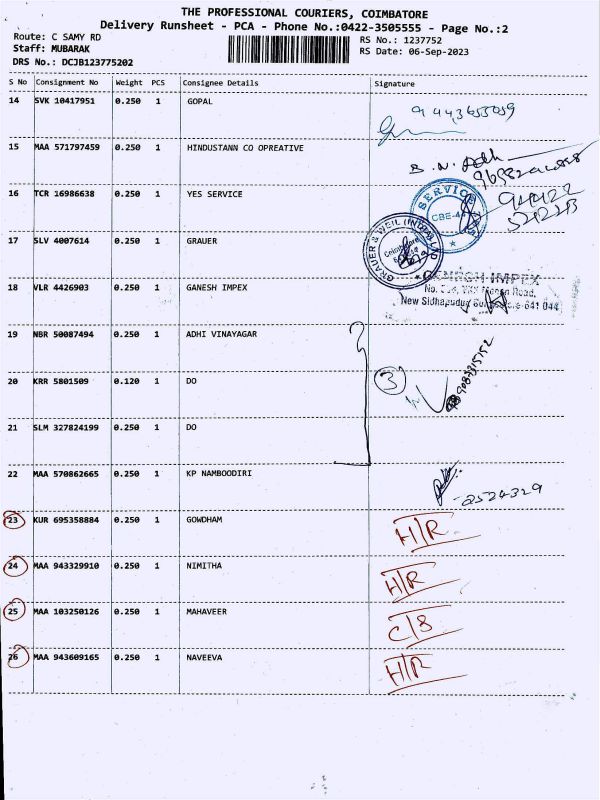 THE PROFESSIONAL COURIERS, COIMBATORE
Delivery Runsheet - PCA - Phone No.:0422-3505555 - Page No.:2
Route: C SAMY RD
RS No.: 1237752
Staff: MUBARAK
RS Date: 06-Sep-2023
DRS No.: DCJB123775202
S No Consignment No Weight PCS Consignee Details Signature
14 SVK 10417951 0.250 1 GOPAL
15 MAA 571797459 0.250 1 HINDUSTANN CO OPREATIVE
16 TCR 16986638 0.250 1 YES SERVICE
SERVICE
CBE-44
17 SLV 4007614 0.250 1 GRAUER
GRAUER & WEIL (INDIA) LTD
Coimbatore
18 VLR 4426903 0.250 1 GANESH IMPEX
GANESH IMPEX
No. Road,
New Sidhapudur 641 044
19 NBR 50087494 0.250 1 ADHI VINAYAGAR
20 KRR 5801509 0.120 1 DO 3
21 SLM 327824199 0.250 1 DO
22 MAA 570862665 0.250 1 KP NAMBOODIRI 2524329
23 KUR 695358884 0.250 1 GOWDHAM H/R
24 MAA 943329910 0.250 1 NIMITHA H/R
25 MAA 103250126 0.250 1 MAHAVEER C/S
26 MAA 943609165 0.250 1 NAVEEVA H/R